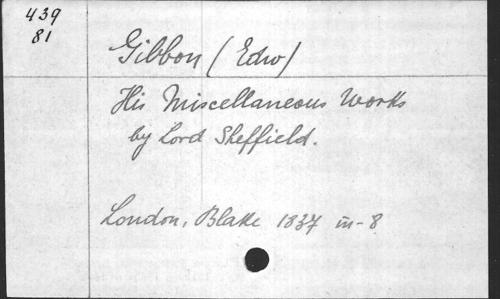 439
81
Gibbon (Edw)
His Miscellaneous Works
by Lord Sheffield.
London, Blake 1837 in-8.